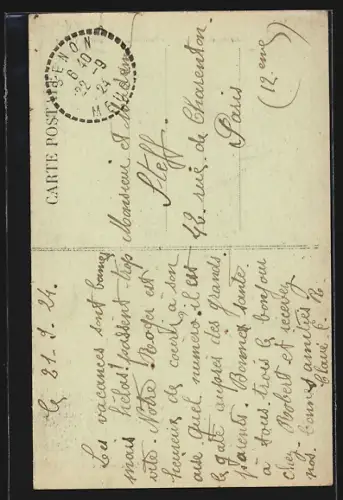 CARTE POSTALE
XENON
6 40
22 - 9
24
Le 21. 9. 24.
Les vacances sont bonnes
mais hélas! passent trop
vite. Notre Roger est
heureux de courir à son
aise quel numéro, il est
le gaté auprès des grands
parents. Bonne santé
à tous trois le bonjour
chez Robert et recevez
nos bonnes amitiés
Claire E. R.
Monsieur et Madame
Steff
42 rue de Charenton
Paris
(12. eme)